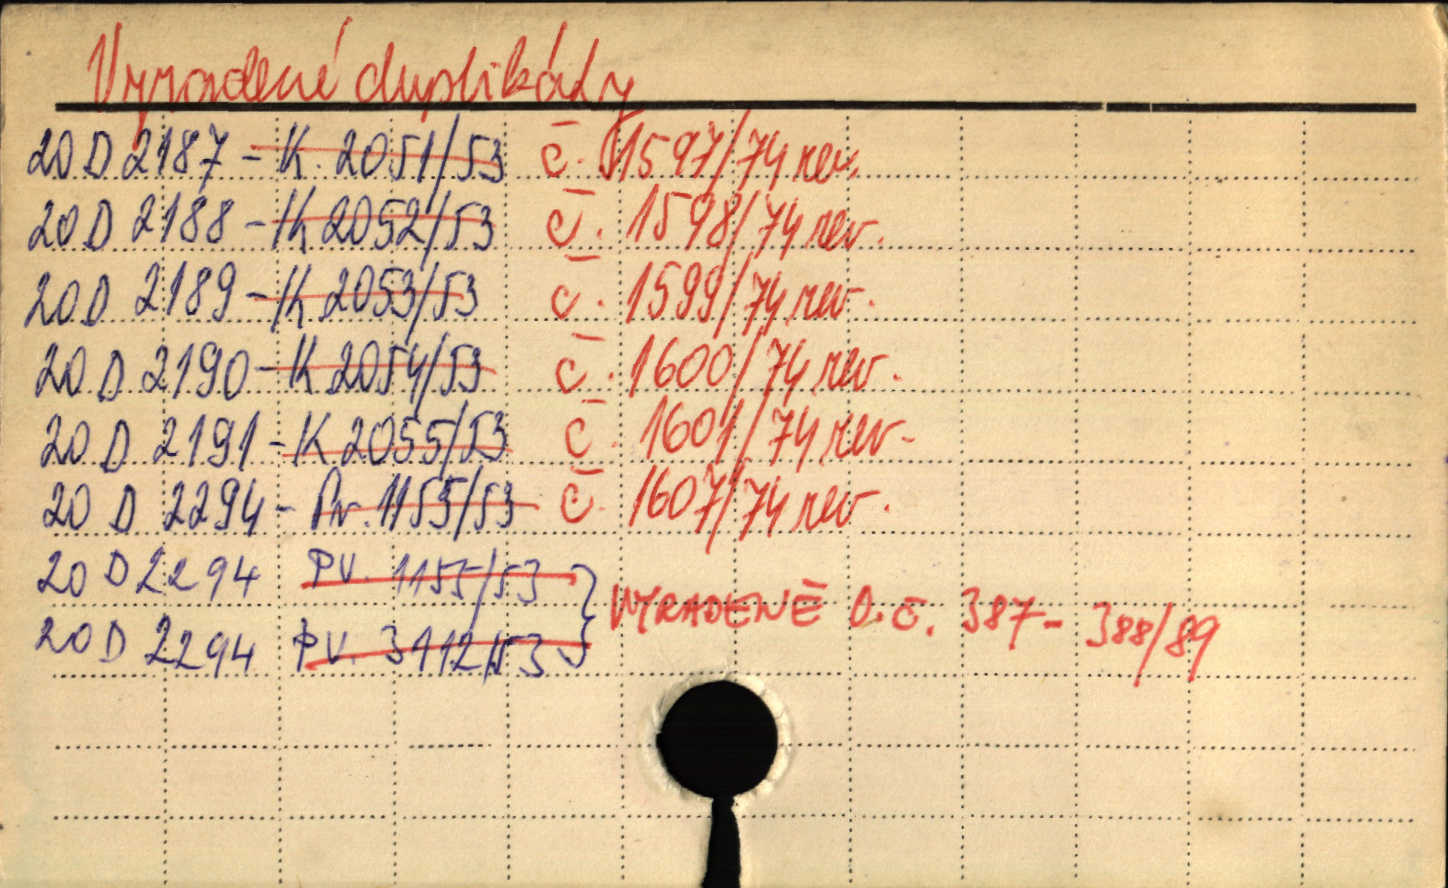 Vyradené duplikáty
20 D 2187 - K. 2051/53 č. 1597/74 rev.
20 D 2188 - K 2052/53 č. 1598/74 rev.
20 D 2189 - K 2053/53 č. 1599/74 rev.
20 D 2190 - K 2054/53 č. 1600/74 rev.
20 D 2191 - K 2055/53 č. 1601/74 rev.
20 D 2294 - Pv. 1155/53 č. 1607/74 rev.
20 D 2294 PV. 1155/53
20 D 2294 PV. 3112/53
VYRADENÉ O.č. 387-388/89